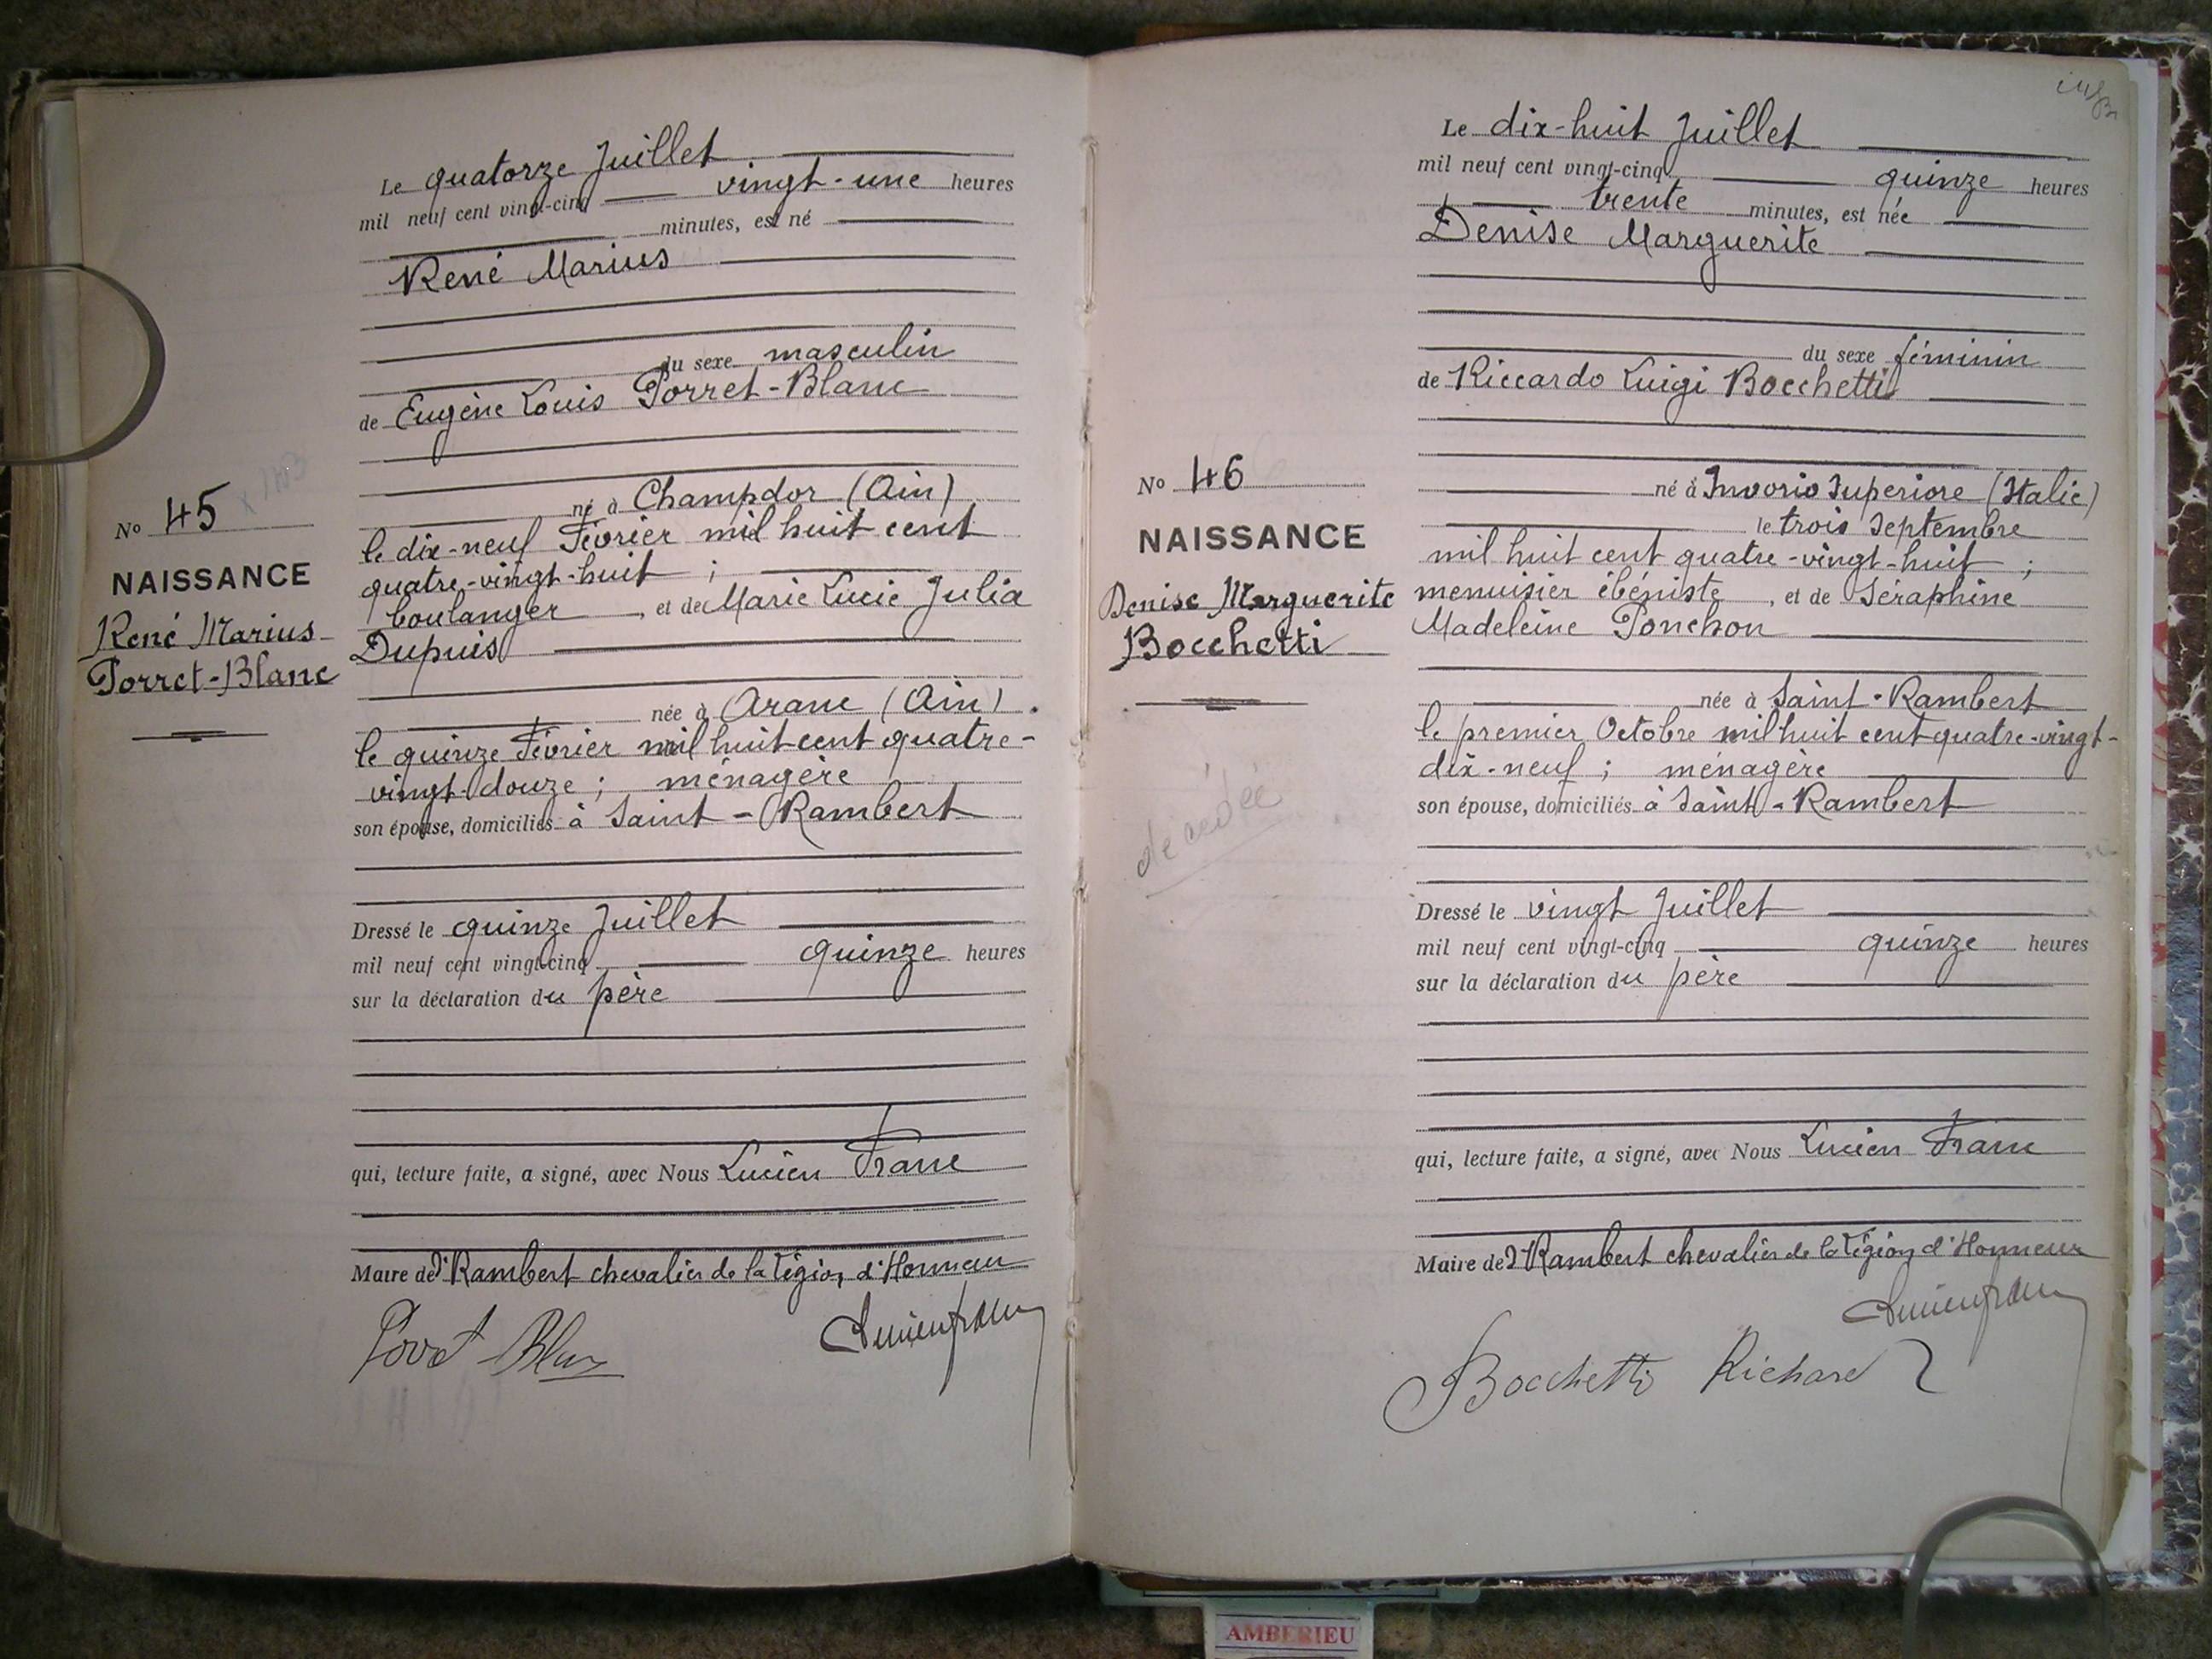 Le quatorze Juillet
mil neuf cent vingt-cinq vingt-une heures
minutes, est né
René Marius
du sexe masculin
de Eugène Louis Porret-Blanc
né à Champdor (Ain)
le dix-neuf Février mil huit cent
quatre-vingt-huit ;
boulanger, et de Marie Lucie Julia
Dupuis
née à Aranc (Ain).
le quinze Février mil huit cent quatre-
vingt-douze ; ménagère
son épouse, domiciliés à Saint-Rambert
Dressé le quinze Juillet
mil neuf cent vingt-cinq quinze heures
sur la déclaration du père
qui, lecture faite, a signé, avec Nous Lucien Franc
Maire de St Rambert chevalier de la Légion d'Honneur
Porret Blanc
Lucien Franc
No 45
NAISSANCE
René Marius
Porret-Blanc
Le dix-huit Juillet
mil neuf cent vingt-cinq quinze heures
trente minutes, est née
Denise Marguerite
du sexe féminin
de Riccardo Luigi Bocchetti
né à Invorio Superiore (Italie)
le trois Septembre
mil huit cent quatre-vingt-huit ;
menuisier ébéniste, et de Séraphine
Madeleine Ponchon
née à Saint-Rambert
le premier Octobre mil huit cent quatre-vingt-
dix-neuf ; ménagère
son épouse, domiciliés à Saint-Rambert
Dressé le vingt Juillet
mil neuf cent vingt-cinq quinze heures
sur la déclaration du père
qui, lecture faite, a signé, avec Nous Lucien Franc
Maire de St Rambert chevalier de la Légion d'Honneur
Lucien Franc
Bocchetti Richard
No 46
NAISSANCE
Denise Marguerite
Bocchetti
décédée
AMBERIEU